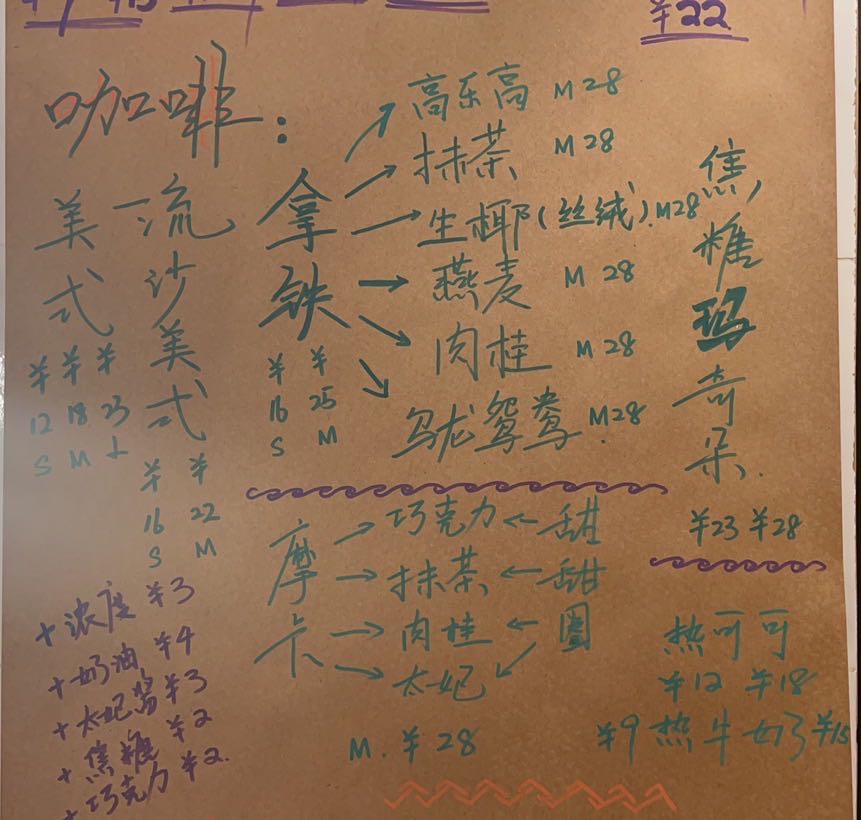 ¥22
咖啡：
美式
¥12 S
¥18 M
¥23 L
流沙美式
¥16 S
¥22 M
拿铁
¥16 S
¥25 M
高乐高 M 28
抹茶 M 28
生椰(丝绒). M28
燕麦 M 28
肉桂 M 28
乌龙鸳鸯 M28
焦糖玛奇朵.
¥23 ¥28
摩卡
巧克力
抹茶
肉桂
太妃
甜甜圈
M. ¥28
热可可
¥12 ¥18
¥9 热牛奶 ¥15
+浓度 ¥3
+奶油 ¥4
+太妃酱 ¥3
+焦糖 ¥2
+巧克力 ¥2.